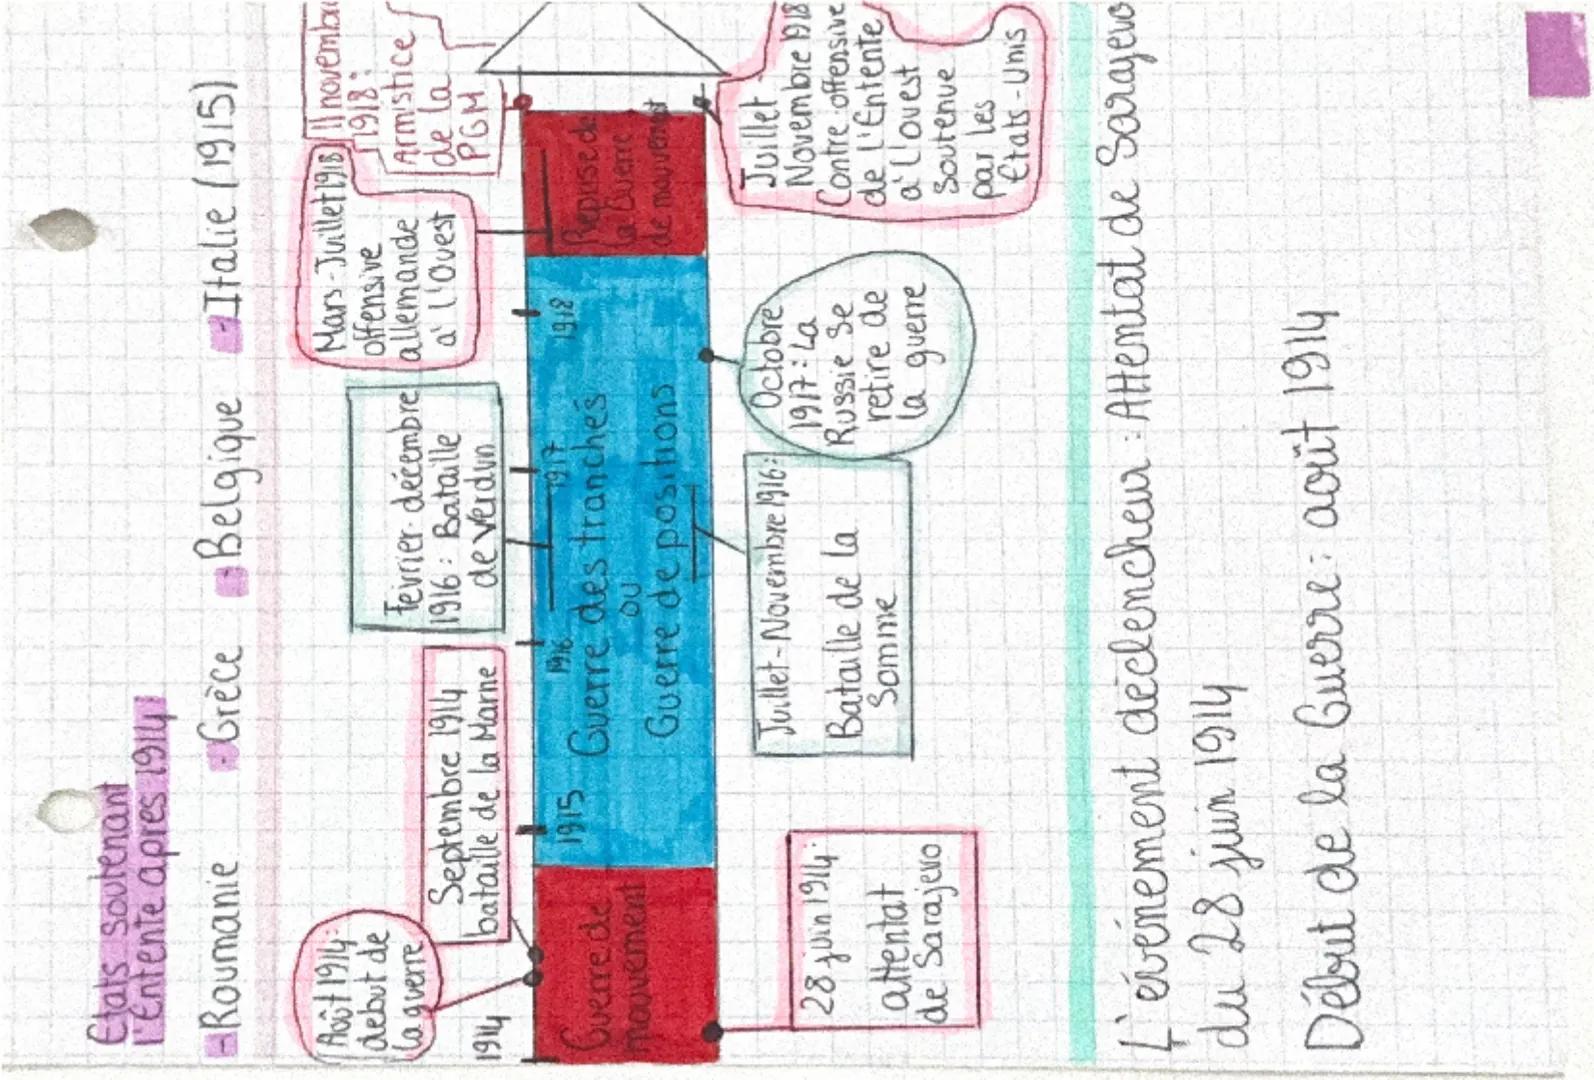 Etats soutenant
l'Entente après 1914
- Roumanie - Grèce - Belgique - Italie (1915)
Août 1914:
debut de
la guerre
Septembre 1914
bataille de la Marne
Fevrier-décembre
1916 : Bataille
de Verdun
Mars-Juillet 1918
offensive
allemande
à l'Ouest
11 novembre
1918:
Armistice
de la
PGM
1914
1915
1916
1917
1918
Guerre de
mouvement
Guerre des tranchés
ou
Guerre de positions
Reprise de
la Guerre
de mouvement
28 juin 1914:
attentat
de Sarajevo
Juillet-Novembre 1916:
Bataille de la
Somme
Octobre
1917: La
Russie se
retire de
la guerre
Juillet-
Novembre 1918
Contre offensive
de l'Entente
à l'ouest
soutenue
par les
Etats-Unis
L'événement déclencheur : Attentat de Sarajevo
du 28 juin 1914
Début de la Guerre : août 1914